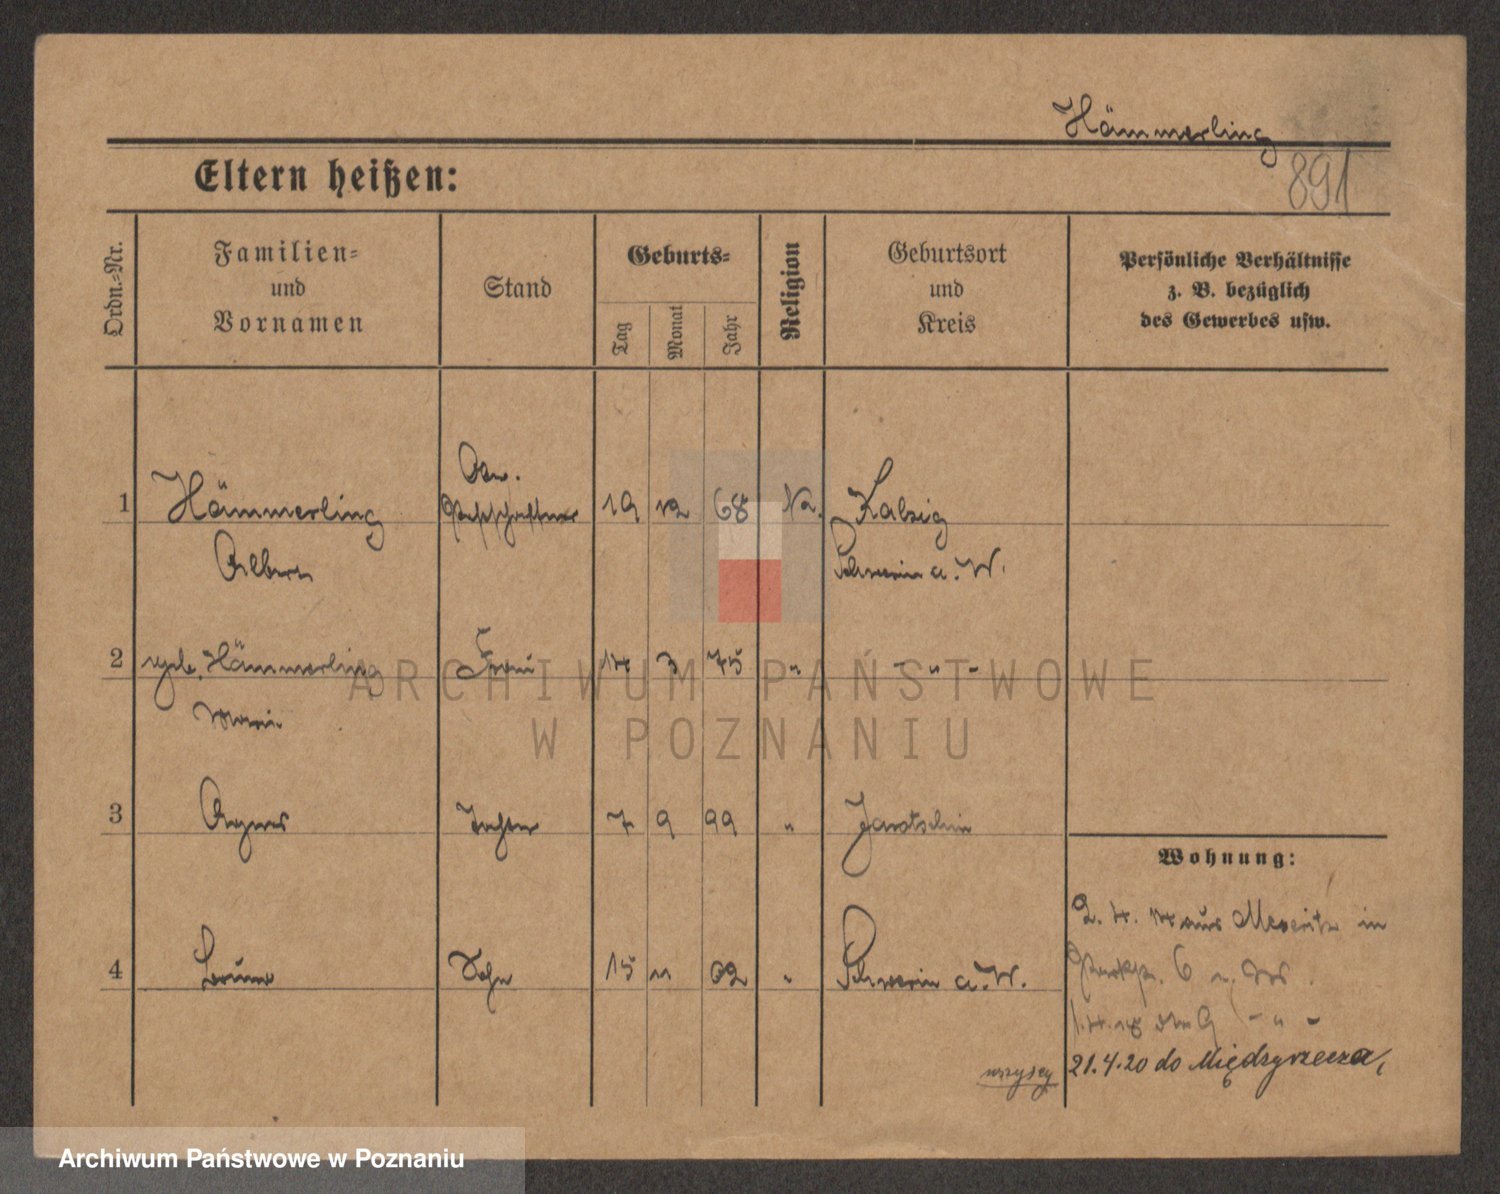 Hämmerling
891
Eltern heißen:
Ordn.-Nr.
Familien-
und
Vornamen
Stand
Geburts-
Tag
Monat
Jahr
Religion
Geburtsort
und
Kreis
Persönliche Verhältnisse
z. B. bezüglich
des Gewerbes usw.
1 Hämmerling
Postschaffner 19 12 68 Kalzig
Albert
Schwerin a. W.
2 geb. Hämmerling Frau 14 3 75 " - " -
Marie
3 Agnes Tochter 7 9 99 " Jarotschin
4 Bruno Sohn 15 11 02 " Schwerin a. W.
Wohnung:
2. 4. 14 aus Meseritz in
6
- " -
wszyscy
21.4.20 do Międzyrzecza,
ARCHIWUM PAŃSTWOWE
W POZNANIU
Archiwum Państwowe w Poznaniu